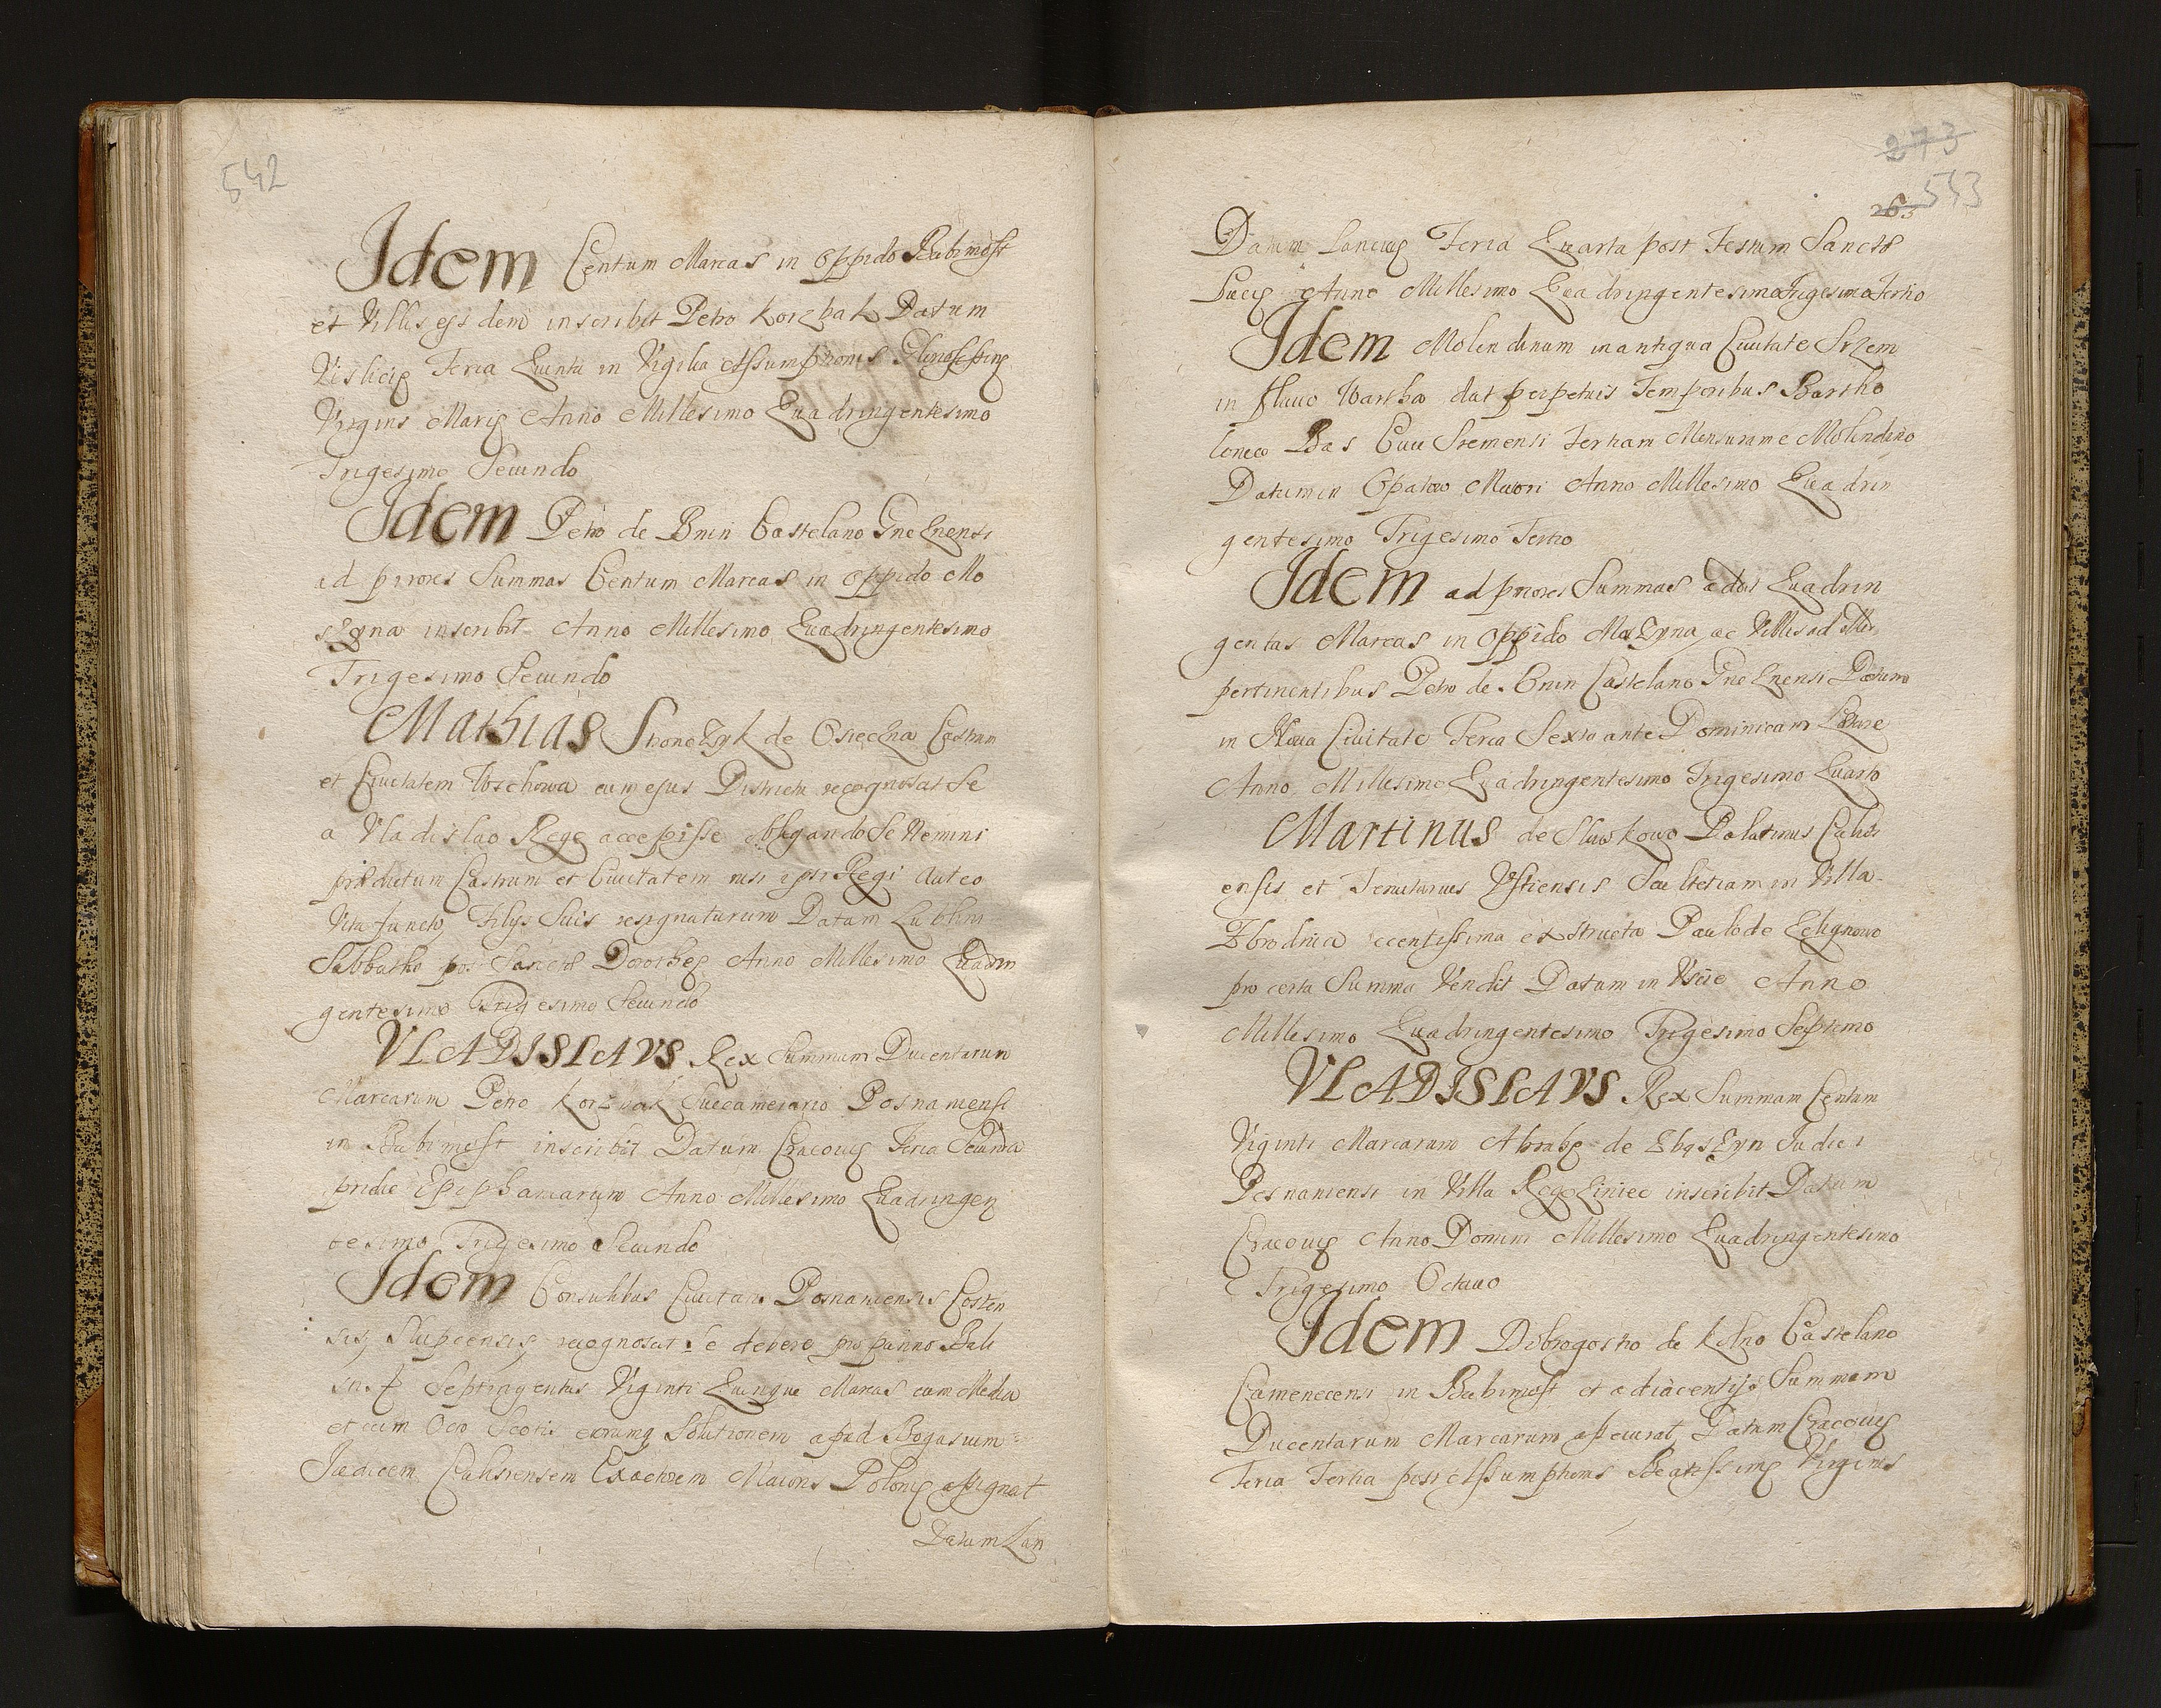 542
Idem Centum Marcas in Oppido Babimost
et Villis ejsdem inscribit Petro Korzbak Datum
Vislicię Feria Quinta in Vigilia Assumptionis
Virginis Marię Anno Millesimo Quadringentesimo
Trigesimo Secundo
Idem Petro de Bnin Castelano Gneznensi
ad priores Summas Centum Marcas in Oppido Mo
szyna inscribit Anno Millesimo Quadringentesimo
Trigesimo Secundo
Mathias de Osieczna Castrum
et Civitatem Wschowa cum ejus Districtu recognoscit se
a Vladislao Rege accepisse obligando se Nemini
prædictum Castrum et Civitatem nisi ipsi Regi aut eo
Vita functo, Filijs Suis resignaturum Datum Lublini
Sabbatho post Sanctæ Dorotheę Anno Millesimo Quadrin
gentesimo Trigesimo Secundo
VLADISLAVS Rex Summam Ducentarum
Marcarum Petro Korzbak Succamerario Posnaniensi
in Babimost inscribit Datum Cracovię Feria Secunda
pridie Epiphaniarum Anno Millesimo Quadringen
tesimo Trigesimo Secundo
Idem Consulibus Civitatis Posnaniensis Costen
sis, Slupcensis, recognoscit se debere pro panno
Septingentas Viginti Quinque Marcas cum Media
et cum Octo Scotis eorumq Solutionem apud Bogusium
Judicem Calisiensem Exactorem Maioris Polonię assignat
Datum Lan
273
543
263
Datum Lancicię Feria Quarta post Festum Sanctæ
Lucię Anno Millesimo Quadringentesimo Trigesimo Tertio
Idem Molendinum in antiqua Civitate Srzem
in fluvio Wartha dat perpetuis Temporibus Bartho
lomeo Bas Civi Sremensi Tertiam Mensuram e Molendino
Datum in Opatow Maiori Anno Millesimo Quadrin
gentesimo Trigesimo Tertio
Idem ad priores Summas addit Quadrin
gentas Marcas in Oppido Moszyna, ac Villis ad illud
pertinentibus Petro de Bnin Castelano Gneznensi Datum
in Nova Civitate Feria Sexta ante Dominicam Lætare
Anno Millesimo Quadringentesimo Trigesimo Quarto
Martinus de Slawskowo Palatinus Calisi
ensis et Tenutarius Vstiensis Scultetiam in Villa
Zbrodnia exstructa Paulo de
pro certa Summa Vendit Datum in Vscie Anno
Millesimo Quadringentesimo Trigesimo Septimo
VLADISLAVS Rex Summam Centum
Viginti Marcarum Abrahę de Zbąszyn Judici
Posnaniensi in Villa inscribit Datum
Cracovię Anno Domini Millesimo Quadringentesimo
Trigesimo Octavo
Idem Dobrogostio de Kolno Castelano
Camenecensi in Babimost et adiacentijs Summam
Ducentarum Marcarum assecurat, Datum Cracovię
Feria Tertia post Assumptionis Beatissimę Virginis